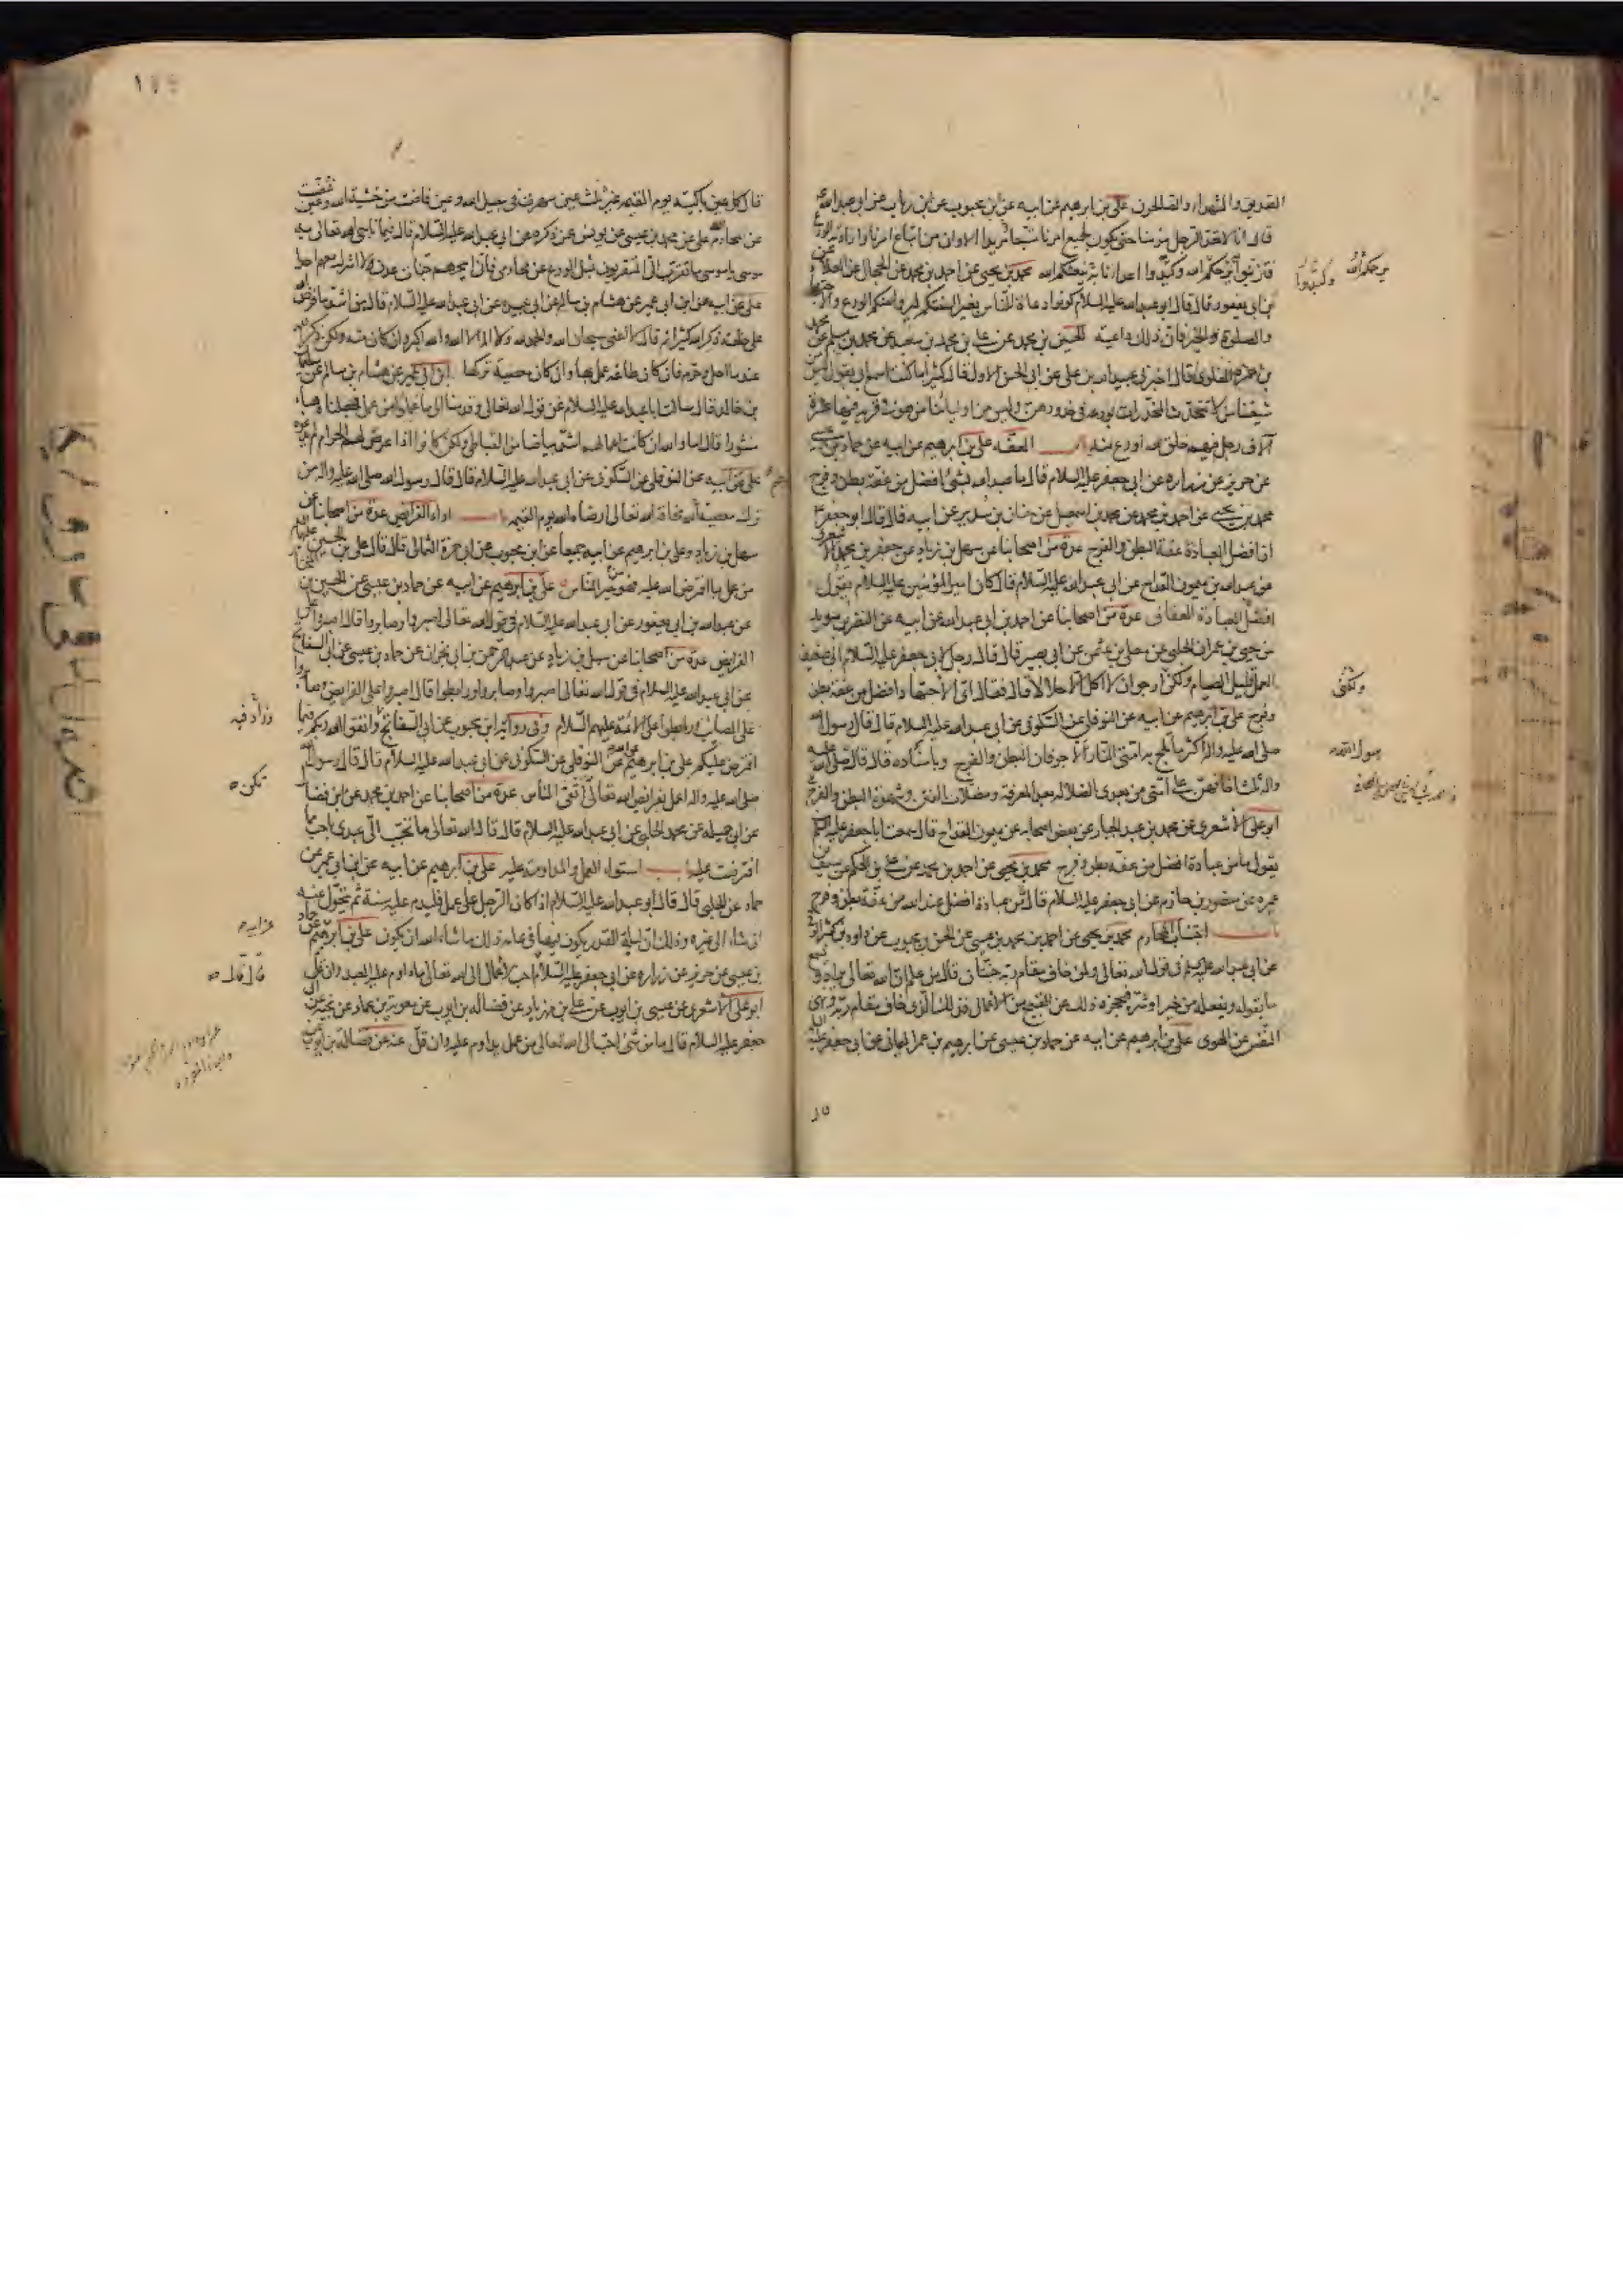 الصديقين والشهداء والصالحين علي بن ابرهيم عن ابيه عن ابن محبوب عن ابن رياب عن ابي عبد الله
قال انا لا نعد الرجل مؤمنا حتى يكون لجميع امرنا متبعا مريدا الا وان من اتباع امرنا وارادته الورع
فتزينوا به يرحمكم الله وكبدوا اعداءنا به ينعشكم الله محمد بن يحيى عن احمد بن محمد عن الحجال عن العلاء
عن ابن ابي يعفور قال قال ابو عبد الله عليه السلام كونوا دعاة للناس بغير السنتكم ليروا منكم الورع والاجتهاد
والصلوة والخير فان ذلك داعية الحسين بن محمد عن علي بن محمد بن سعيد عن محمد بن مسلم عن محمد
بن حمزة العلوي قال اخبرني عبيد الله بن علي عن ابي الحسن الاول قال كثيرا ما كنت اسمع ابي يقول ليس من
شيعتنا من لا تتحدث المخدرات بورعه في خدورهن وليس من اوليائنا من هو في قرية فيها عشرة
آلاف رجل فيهم خلق الله اورع منه باب العفة علي بن ابرهيم عن ابيه عن حماد بن عيسى
عن حريز عن زرارة عن ابي جعفر عليه السلام قال ما عبد الله بشئ افضل من عفة بطن وفرج
محمد بن يحيى عن احمد بن محمد عن محمد بن اسمعيل عن حنان بن سدير عن ابيه قال قال ابو جعفر
ان افضل العبادة عفة البطن والفرج عدة من اصحابنا عن سهل بن زياد عن جعفر بن محمد الاشعري
عن عبد الله بن ميمون القداح عن ابي عبد الله عليه السلام قال كان امير المؤمنين عليه السلام يقول
افضل العبادة العفاف عدة من اصحابنا عن احمد بن ابي عبد الله عن ابيه عن النضر بن سويد
عن يحيى بن عمران الحلبي عن معلى بن عثمن عن ابي بصير قال قال رجل لابي جعفر عليه السلام اني ضعيف
العمل قليل الصيام ولكن ارجو ان لا اكل الا حلالا قال فقال اي الاجتهاد افضل من عفة بطن
وفرج علي بن ابرهيم عن ابيه عن النوفلي عن السكوني عن ابي عبد الله عليه السلام قال قال رسول الله
صلى الله عليه واله اكثر ما تلج به امتي النار الاجوفان البطن والفرج وباسناده قال قال صلى الله عليه
واله ثلث اخافهن على امتي من بعدي الضلالة بعد المعرفة ومضلات الفتن وشهوة البطن والفرج
ابو علي الاشعري عن محمد بن عبد الجبار عن بعض اصحابه عن ميمون القداح قال سمعت ابا جعفر عليه السلام
يقول ما من عبادة افضل من عفة بطن وفرج محمد بن يحيى عن احمد بن محمد عن علي بن الحكم عن سيف بن
عميرة عن منصور بن حازم عن ابي جعفر عليه السلام قال ما من عبادة افضل عند الله من عفة بطن وفرج
باب اجتناب المحارم محمد بن يحيى عن احمد بن محمد بن عيسى عن الحسن بن محبوب عن داود بن كثير الرقي
عن ابي عبد الله عليه السلام في قول الله تعالى ولمن خاف مقام ربه جنتان قال من علم ان الله تعالى يراه ويسمع
ما يقوله ويفعله من خير او شر فيحجزه ذلك عن القبيح من الاعمال فذلك الذي خاف مقام ربه ونهى
النفس عن الهوى علي بن ابرهيم عن ابيه عن حماد بن عيسى عن ابرهيم بن عمر اليماني عن ابي جعفر عليه السلام
يرحمكم الله
وكبدوا
ولكنى
رسول الله
قال كل عين باكية يوم القيمة غير ثلث عين سهرت في سبيل الله وعين فاضت من خشية الله وعين غضت
عن محارم الله علي عن محمد بن عيسى عن يونس عمن ذكره عن ابي عبد الله عليه السلام قال فيما ناجى الله تعالى به
موسى يا موسى ما تقرب الى المتقربون بمثل الورع عن محارمي فاني ابيحهم جنات عدن لا اشرك معهم احدا
علي عن ابيه عن ابن ابي عمير عن هشام بن سالم عن ابي عبيدة عن ابي عبد الله عليه السلام قال من اشد ما فرض الله
على خلقه ذكر الله كثيرا ثم قال لا اعني سبحان الله والحمد لله ولا اله الا الله والله اكبر وان كان منه ولكن ذكر الله
عند ما احل وحرم فان كان طاعة عمل بها وان كان معصية تركها ابن ابي عمير عن هشام بن سالم عن سليمان
بن خالد قال سالت ابا عبد الله عليه السلام عن قول الله تعالى وقدمنا الى ما عملوا من عمل فجعلناه هباء
منثورا قال اما والله ان كانت اعمالهم اشد بياضا من القباطي ولكن كانوا اذا عرض لهم الحرام لم يدعوه
علي عن ابيه عن النوفلي عن السكوني عن ابي عبد الله عليه السلام قال قال رسول الله صلى الله عليه واله من
ترك معصية لله مخافة الله تعالى ارضاه الله يوم القيمة باب اداء الفرايض عدة من اصحابنا عن
سهل بن زياد وعلي بن ابرهيم عن ابيه جميعا عن ابن محبوب عن ابي حمزة الثمالي قال قال علي بن الحسين عليهما السلام
من عمل بما افترض الله عليه فهو من خير الناس علي بن ابرهيم عن ابيه عن حماد بن عيسى عن الحسين بن المختار
عن عبد الله بن ابي يعفور عن ابي عبد الله عليه السلام في قول الله تعالى اصبروا وصابروا قال اصبروا على
الفرايض عدة من اصحابنا عن سهل بن زياد عن عبد الرحمن بن ابي نجران عن حماد بن عيسى عن ابي السفاتج
عن ابي عبد الله عليه السلام في قول الله تعالى اصبروا وصابروا ورابطوا قال اصبروا على الفرايض وصابروا
على المصائب ورابطوا على الائمة عليهم السلام وفي رواية ابن محبوب عن ابي السفاتج واتقوا الله ربكم فيما
افترض عليكم علي بن ابرهيم عن ابيه عن النوفلي عن السكوني عن ابي عبد الله عليه السلام قال قال رسول الله
صلى الله عليه واله اعمل بفرايض الله تعالى اتقى الناس عدة من اصحابنا عن احمد بن محمد عن ابن فضال
عن ابي جميلة عن محمد الحلبي عن ابي عبد الله عليه السلام قال قال الله تعالى ما تحبب الي عبدي باحب مما
افترضت عليه باب استواء العمل والمداومة عليه علي بن ابرهيم عن ابيه عن ابن ابي عمير عن
حماد عن الحلبي قال قال ابو عبد الله عليه السلام اذا كان الرجل على عمل فليدم عليه سنة ثم يتحول عنه
ان شاء الى غيره وذلك ان ليلة القدر يكون فيها في عامه ذلك ما شاء الله ان يكون علي بن ابرهيم عن حماد
بن عيسى عن حريز عن زرارة عن ابي جعفر عليه السلام احب الاعمال الى الله تعالى ما داوم عليه العبد وان قل
ابو علي الاشعري عن عيسى بن ايوب عن علي بن مهزيار عن فضالة بن ايوب عن معوية بن عمار عن نجبة عن ابي
جعفر عليه السلام قال ما من شئ احب الى الله تعالى من عمل يداوم عليه وان قل عنه عن فضالة بن ايوب
وزاد فيه
تكن
عن ابيه
قال قال